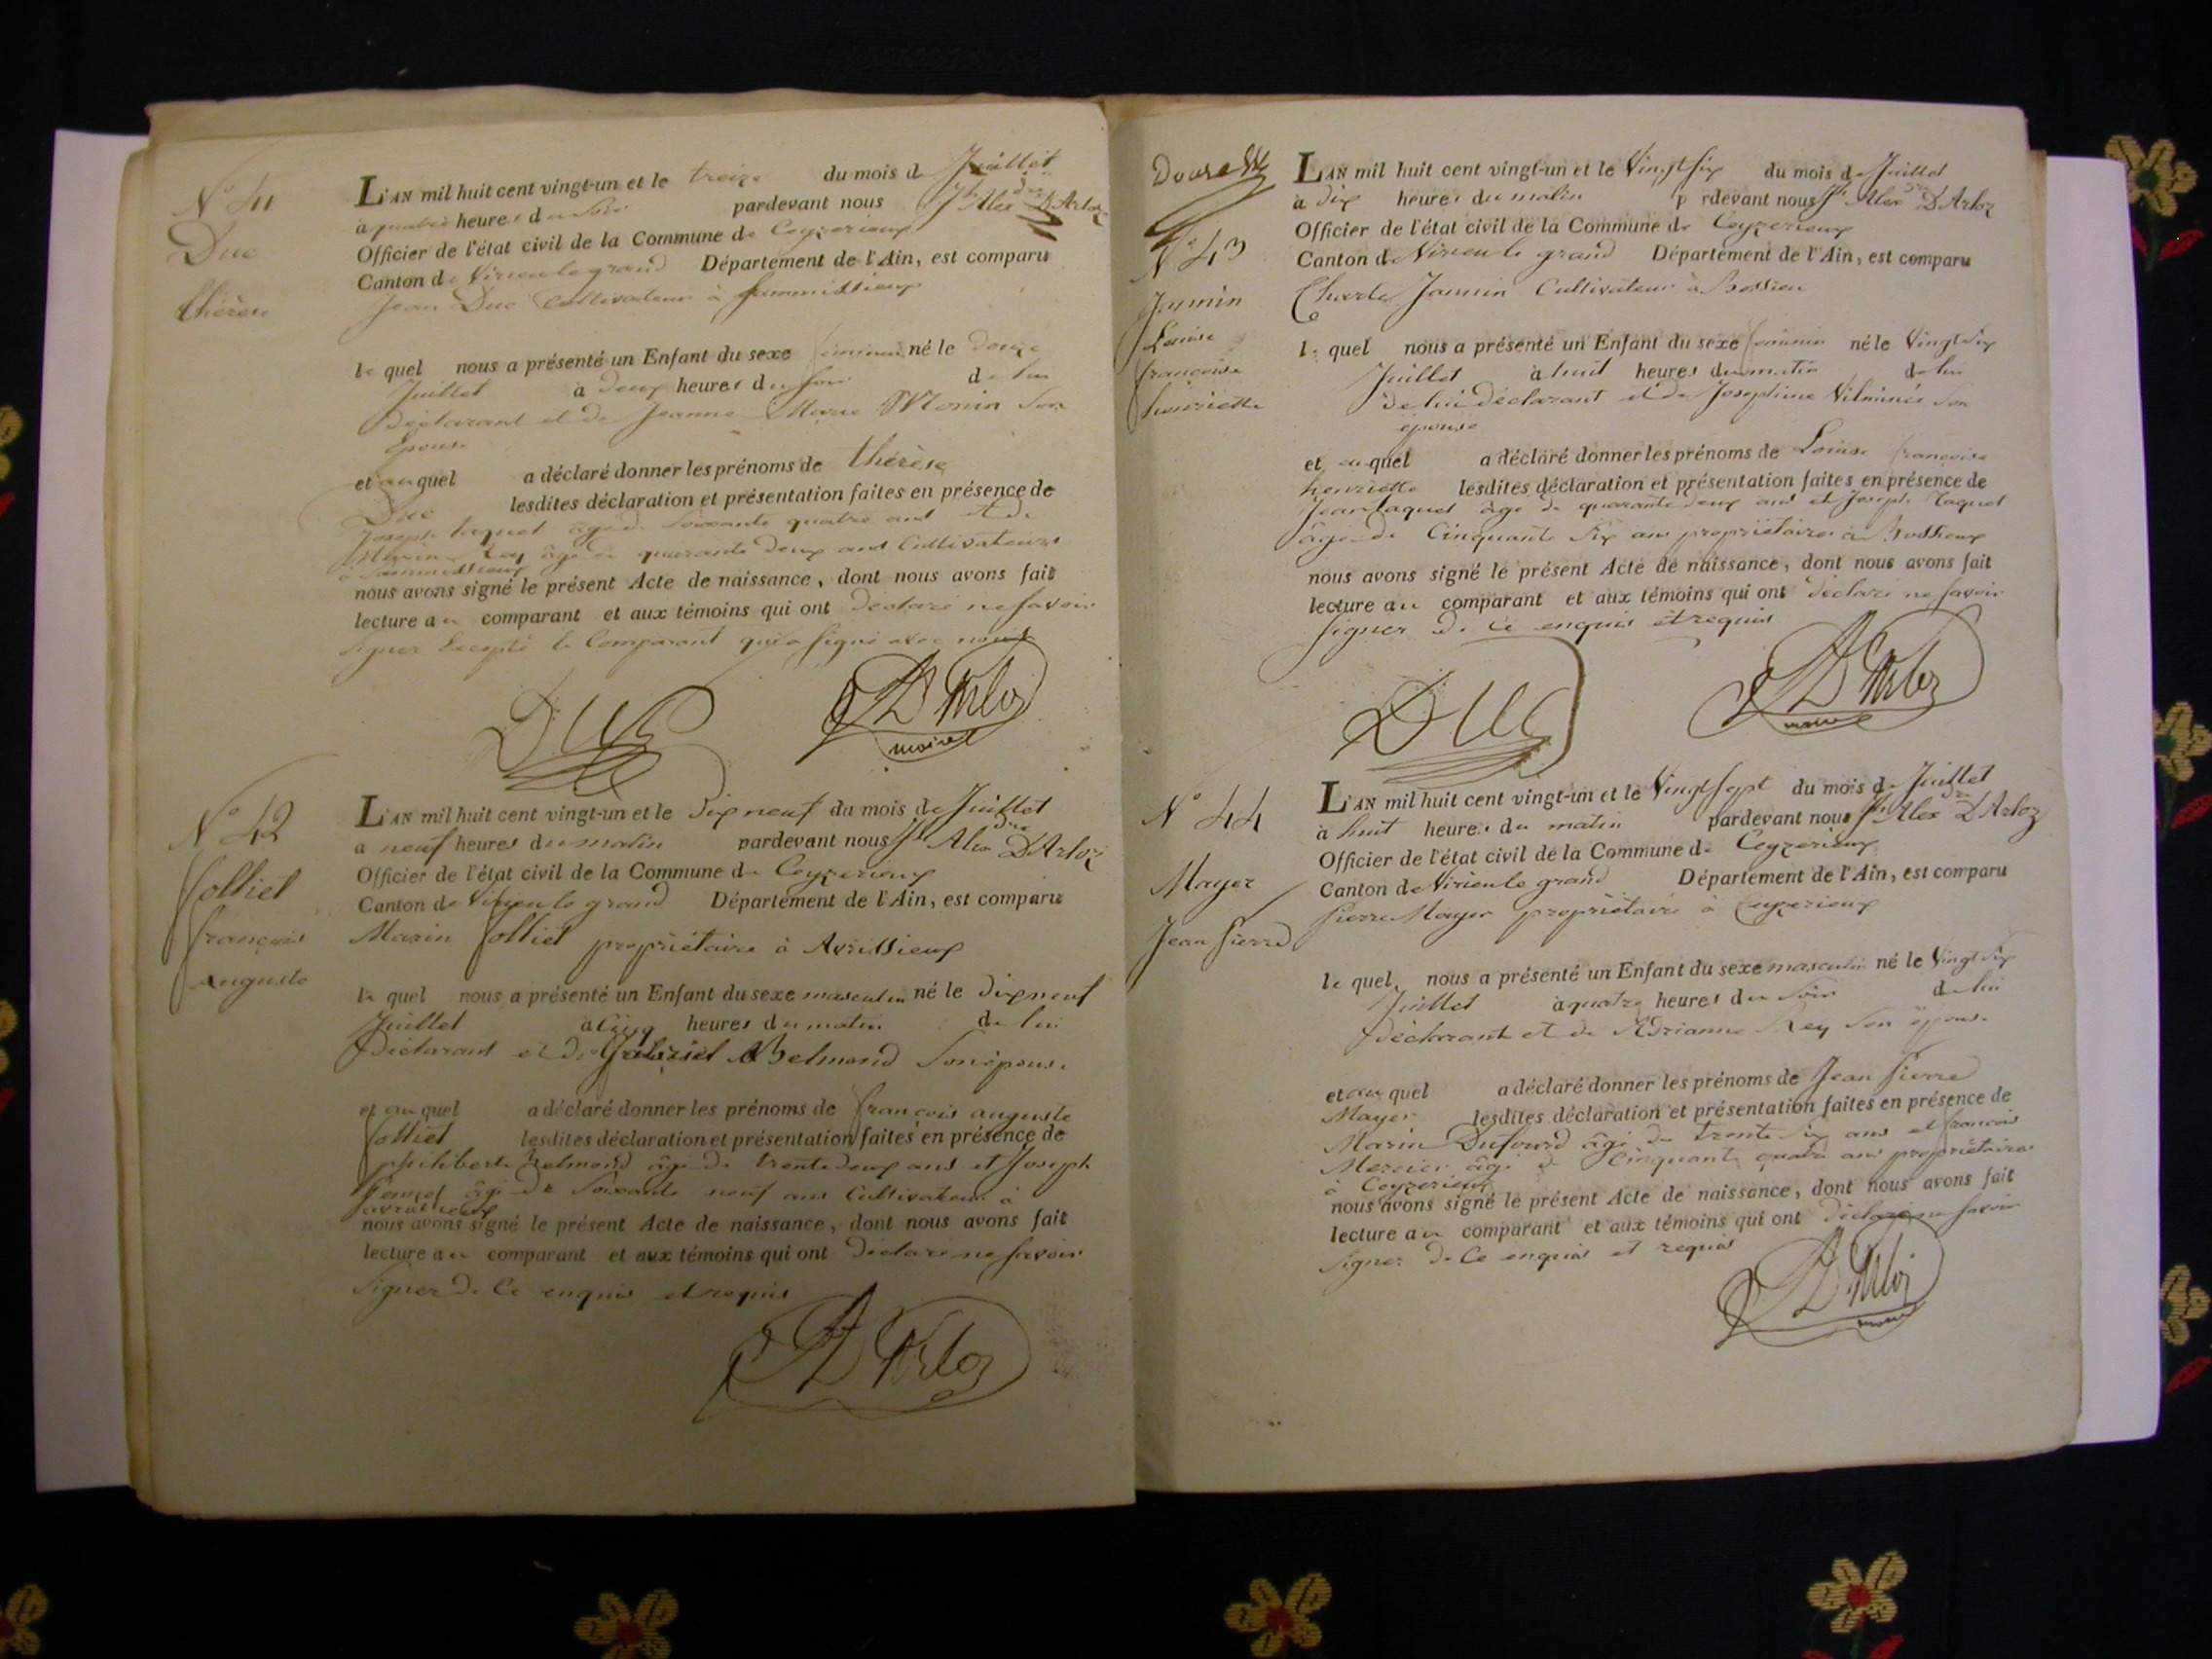 N° 41
Duc
thérèse
L'AN mil huit cent vingt-un et le treize du mois de Juillet
à quatre heures du soir pardevant nous Jh Alexdre D'Arloz
Officier de l'état civil de la Commune de Ceyzerieux
Canton de Virieu le grand Département de l'Ain, est comparu
Jean Duc Cultivateur à
le quel nous a présenté un Enfant du sexe feminin né le douze
Juillet à deux heures du soir de lui
déclarant et de Jeanne Marie Monin son
épouse
et au quel a déclaré donner les prénoms de thérèse
Duc lesdites déclaration et présentation faites en présence de
Joseph taquet âgé de soixante quatre ans et de
Marin Rey âgé de quarante deux ans Cultivateurs
à
nous avons signé le présent Acte de naissance, dont nous avons fait
lecture au comparant et aux témoins qui ont déclaré ne savoir
signer Excepté le Comparant qui a signé avec nous
DUC D'Arloz
maire
N° 42
Jolliet
françois
auguste
L'AN mil huit cent vingt-un et le Dix neuf du mois de Juillet
à neuf heures du matin pardevant nous Jh Alexdre D'Arloz
Officier de l'état civil de la Commune de Ceyzerieux
Canton de Virieu le grand Département de l'Ain, est comparu
Marin Jolliet propriétaire à Avrissieux
le quel nous a présenté un Enfant du sexe masculin né le Dix neuf
Juillet à Cinq heures du matin de lui
Déclarant et de Gabriel Belmond Son épouse
et au quel a déclaré donner les prénoms de françois auguste
Jolliet lesdites déclaration et présentation faites en présence de
philibert Belmond âgé de trente deux ans et Joseph
âgé de Soixante neuf ans Cultivateurs à
avrissieux
nous avons signé le présent Acte de naissance, dont nous avons fait
lecture au comparant et aux témoins qui ont déclaré ne savoir
signer de Ce enquis et requis
D'Arloz
N° 43
Jannin
Louise
françoise
henriette
L'AN mil huit cent vingt-un et le Vingt six du mois de Juillet
à dix heures du matin pardevant nous Jh Alexdre D'Arloz
Officier de l'état civil de la Commune de Ceyzerieux
Canton de Virieu le grand Département de l'Ain, est comparu
Charle Jannin Cultivateur à Bossieu
le quel nous a présenté un Enfant du sexe feminin né le Vingt six
Juillet à huit heures du matin de lui
de lui déclarant et de Josephine Son
épouse
et au quel a déclaré donner les prénoms de Louise françoise
henriette lesdites déclaration et présentation faites en présence de
Jean taquet âgé de quarante deux ans et Joseph taquet
âgé de Cinquante Six ans propriétaires à
nous avons signé le présent Acte de naissance, dont nous avons fait
lecture au comparant et aux témoins qui ont déclaré ne savoir
signer de ce enquis et requis
DUC D'Arloz
maire
N° 44
Mayer
Jean Pierre
L'AN mil huit cent vingt-un et le Vingt sept du mois de Juillet
à huit heures du matin pardevant nous Jh Alexdre D'Arloz
Officier de l'état civil de la Commune de Ceyzerieux
Canton de Virieu le grand Département de l'Ain, est comparu
Pierre Mayer propriétaire à Ceyzerieux
le quel nous a présenté un Enfant du sexe masculin né le Vingt Six
Juillet à quatre heures du Soir de lui
déclarant et de Adrianne Rey Son épouse
et au quel a déclaré donner les prénoms de Jean Pierre
Mayer lesdites déclaration et présentation faites en présence de
Marin Dufourd âgé de trente Six ans et françois
Mercier âgé de Cinquante quatre ans propriétaires
à Ceyzerieux
nous avons signé le présent Acte de naissance, dont nous avons fait
lecture au comparant et aux témoins qui ont déclaré ne savoir
signer de Ce enquis et requis
D'Arloz
maire